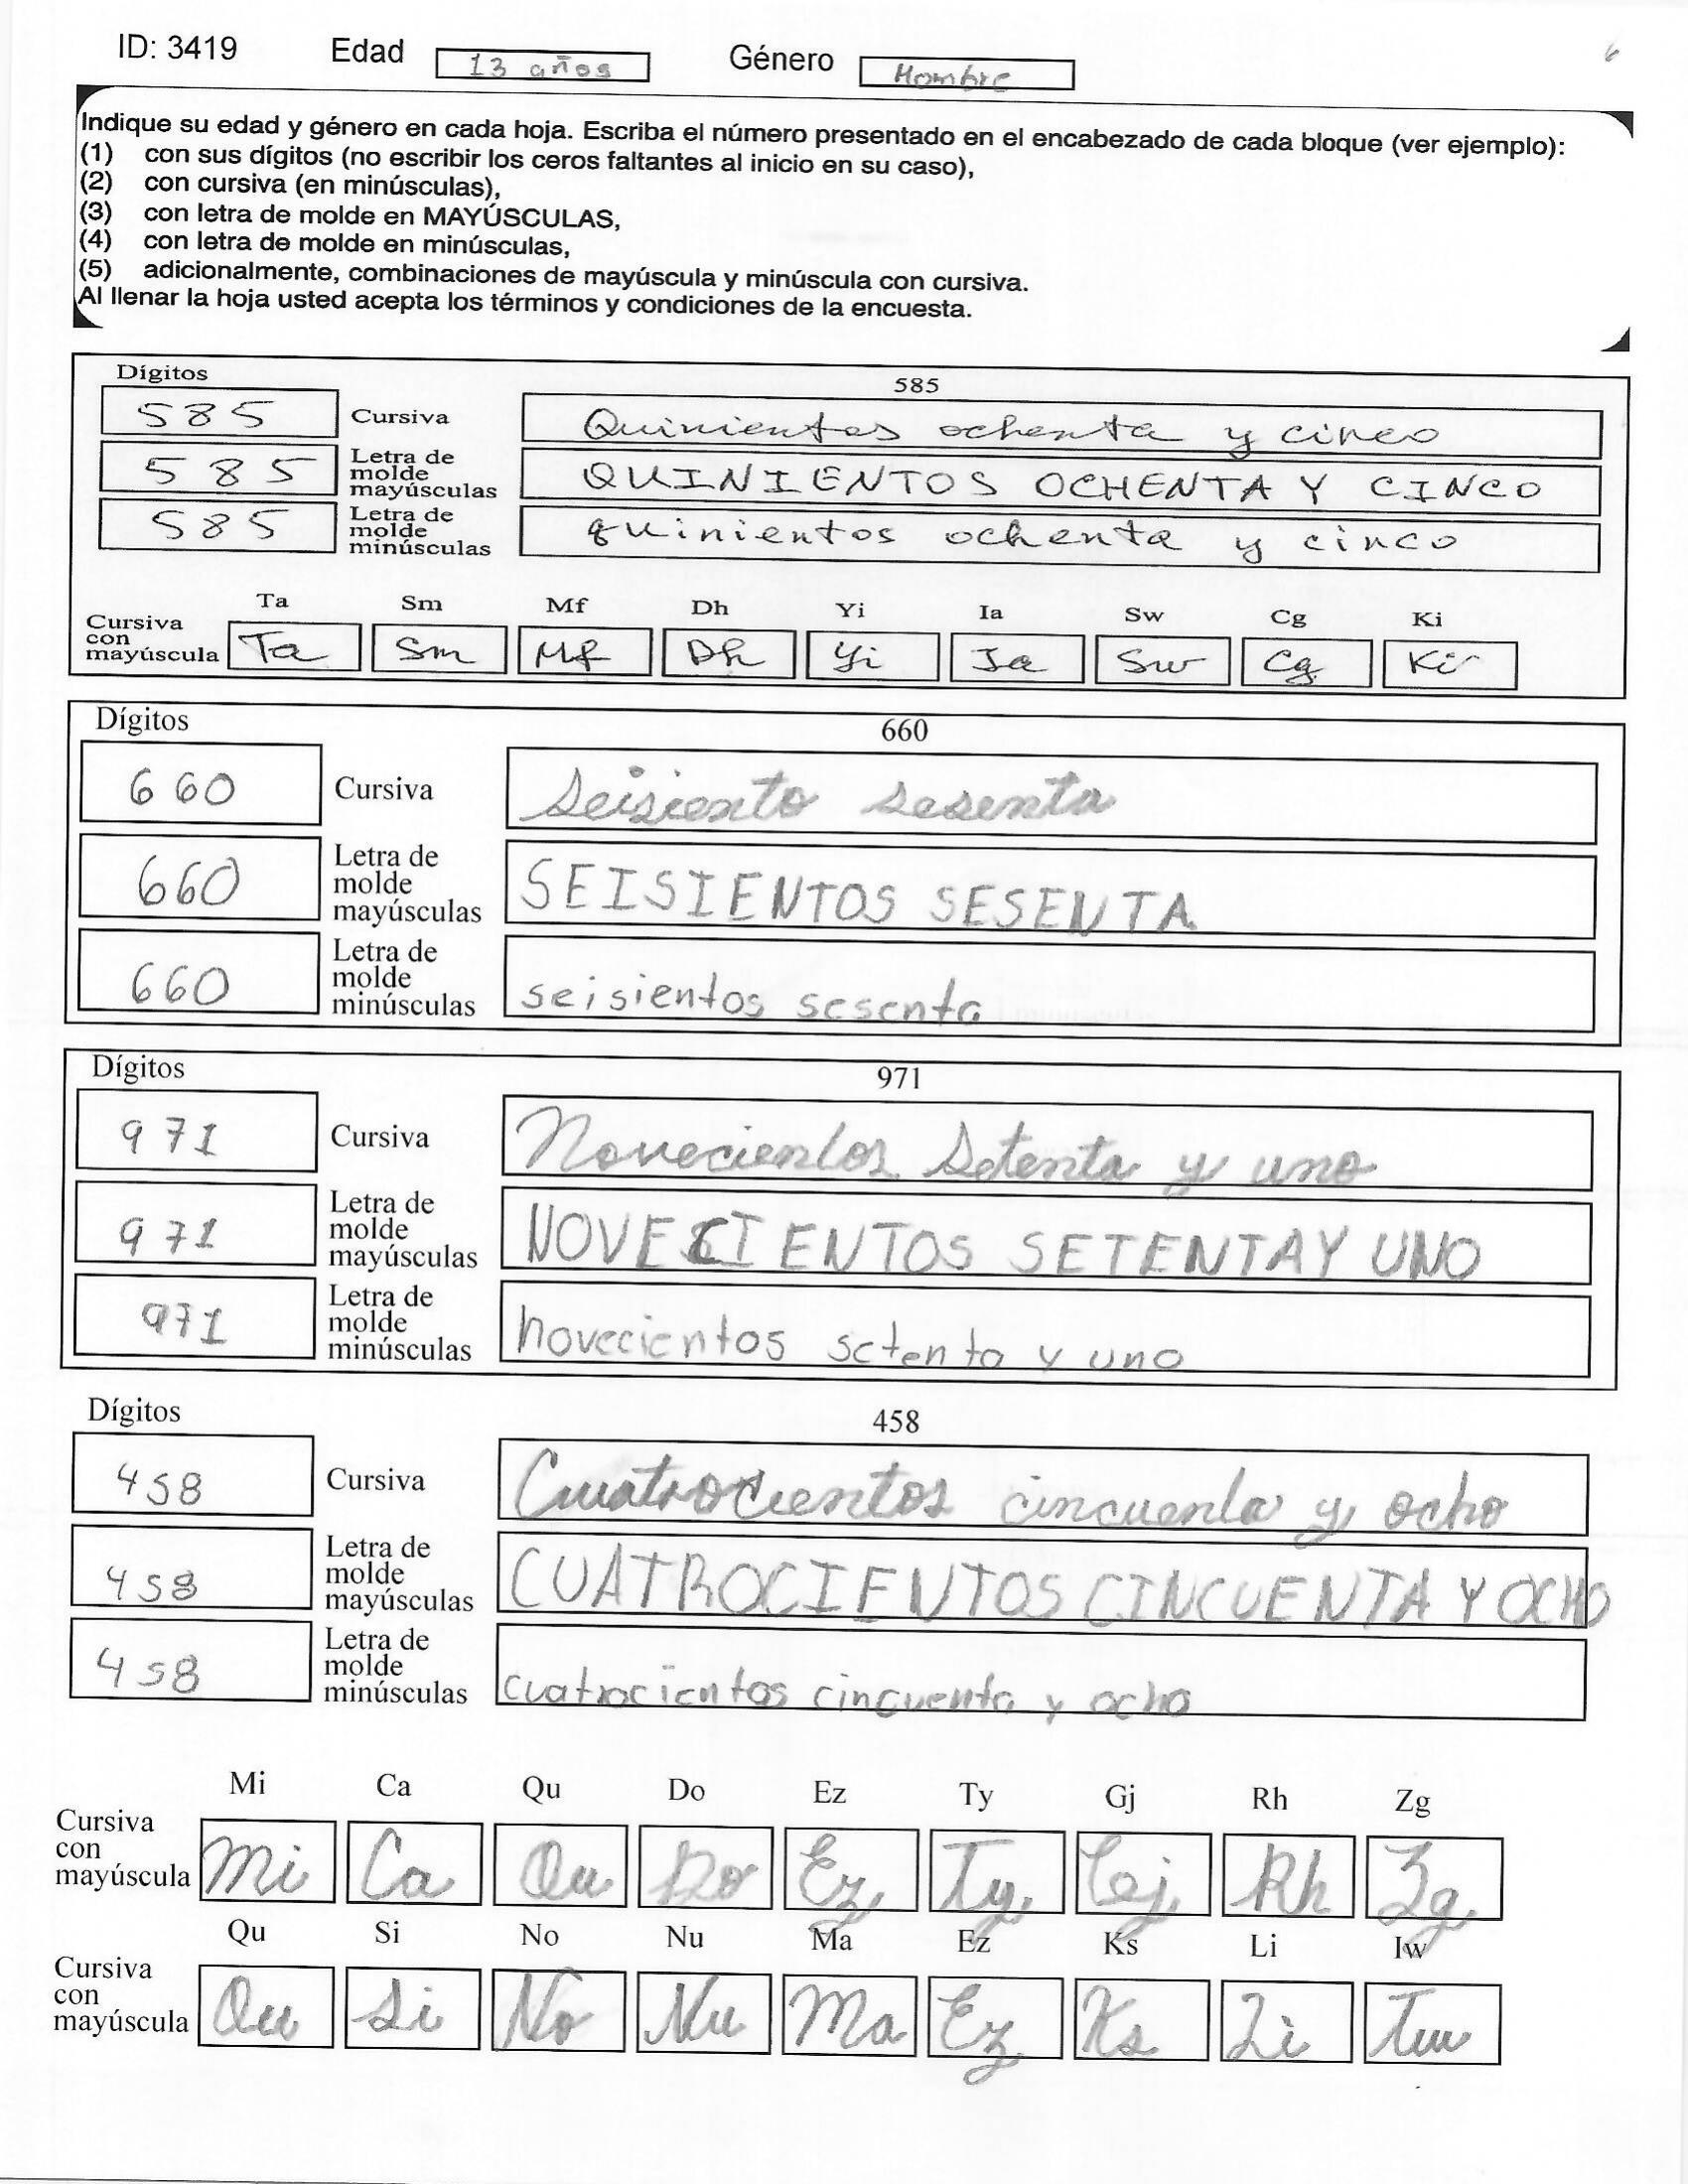 ID: 3419 Edad 13 años Género Hombre 6
Indique su edad y género en cada hoja. Escriba el número presentado en el encabezado de cada bloque (ver ejemplo):
(1) con sus dígitos (no escribir los ceros faltantes al inicio en su caso),
(2) con cursiva (en minúsculas),
(3) con letra de molde en MAYÚSCULAS,
(4) con letra de molde en minúsculas,
(5) adicionalmente, combinaciones de mayúscula y minúscula con cursiva.
Al llenar la hoja usted acepta los términos y condiciones de la encuesta.
Dígitos 585
585 Cursiva Quinientos ochenta y cinco
585 Letra de molde mayúsculas QUINIENTOS OCHENTA Y CINCO
585 Letra de molde minúsculas quinientos ochenta y cinco
Ta Sm Mf Dh Yi Ia Sw Cg Ki
Cursiva con mayúscula Ta Sm Mf Dh Yi Ia Sw Cg Ki
Dígitos 660
660 Cursiva seisiento sesenta
660 Letra de molde mayúsculas SEISIENTOS SESENTA
660 Letra de molde minúsculas seisientos sesenta
Dígitos 971
971 Cursiva Novecientos setenta y uno
971 Letra de molde mayúsculas NOVECIENTOS SETENTA Y UNO
971 Letra de molde minúsculas novecientos setenta y uno
Dígitos 458
458 Cursiva Cuatrocientos cincuenta y ocho
458 Letra de molde mayúsculas CUATROCIENTOS CINCUENTA Y OCHO
458 Letra de molde minúsculas cuatrocientos cincuenta y ocho
Mi Ca Qu Do Ez Ty Gj Rh Zg
Cursiva con mayúscula Mi Ca Qu Do Ez Ty Gj Rh Zg
Qu Si No Nu Ma Ez Ks Li Iw
Cursiva con mayúscula Qu Si No Nu Ma Ez Ks Li Iw